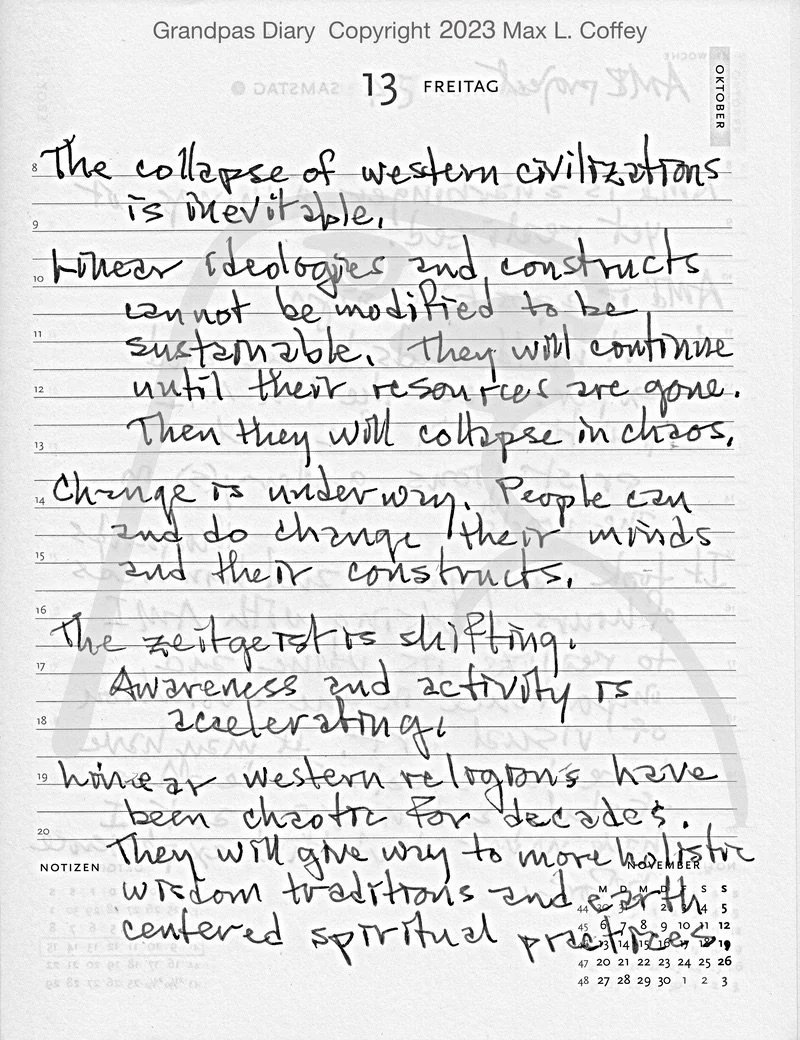 Grandpas Diary Copyright 2023 Max L. Coffey
13 FREITAG
OKTOBER
SAMSTAG
8 The collapse of western civilizations
is inevitable.
9
10 Linear ideologies and constructs
cannot be modified to be
11 sustainable. They will continue
12 until their resources are gone.
13 Then they will collapse in chaos.
14 Change is underway. People can
and do change their minds
15 and their constructs.
16 The zeitgeist is shifting.
17 Awareness and activity is
18 accelerating.
19 Linear western religions have
been chaotic for decades.
20 They will give way to more holistic
NOTIZEN
NOVEMBER
wisdom traditions and earth
centered spiritual practices.
M D M D F S S
44 30 31 1 2 3 4 5
45 6 7 8 9 10 11 12
46 13 14 15 16 17 18 19
47 20 21 22 23 24 25 26
48 27 28 29 30 1 2 3